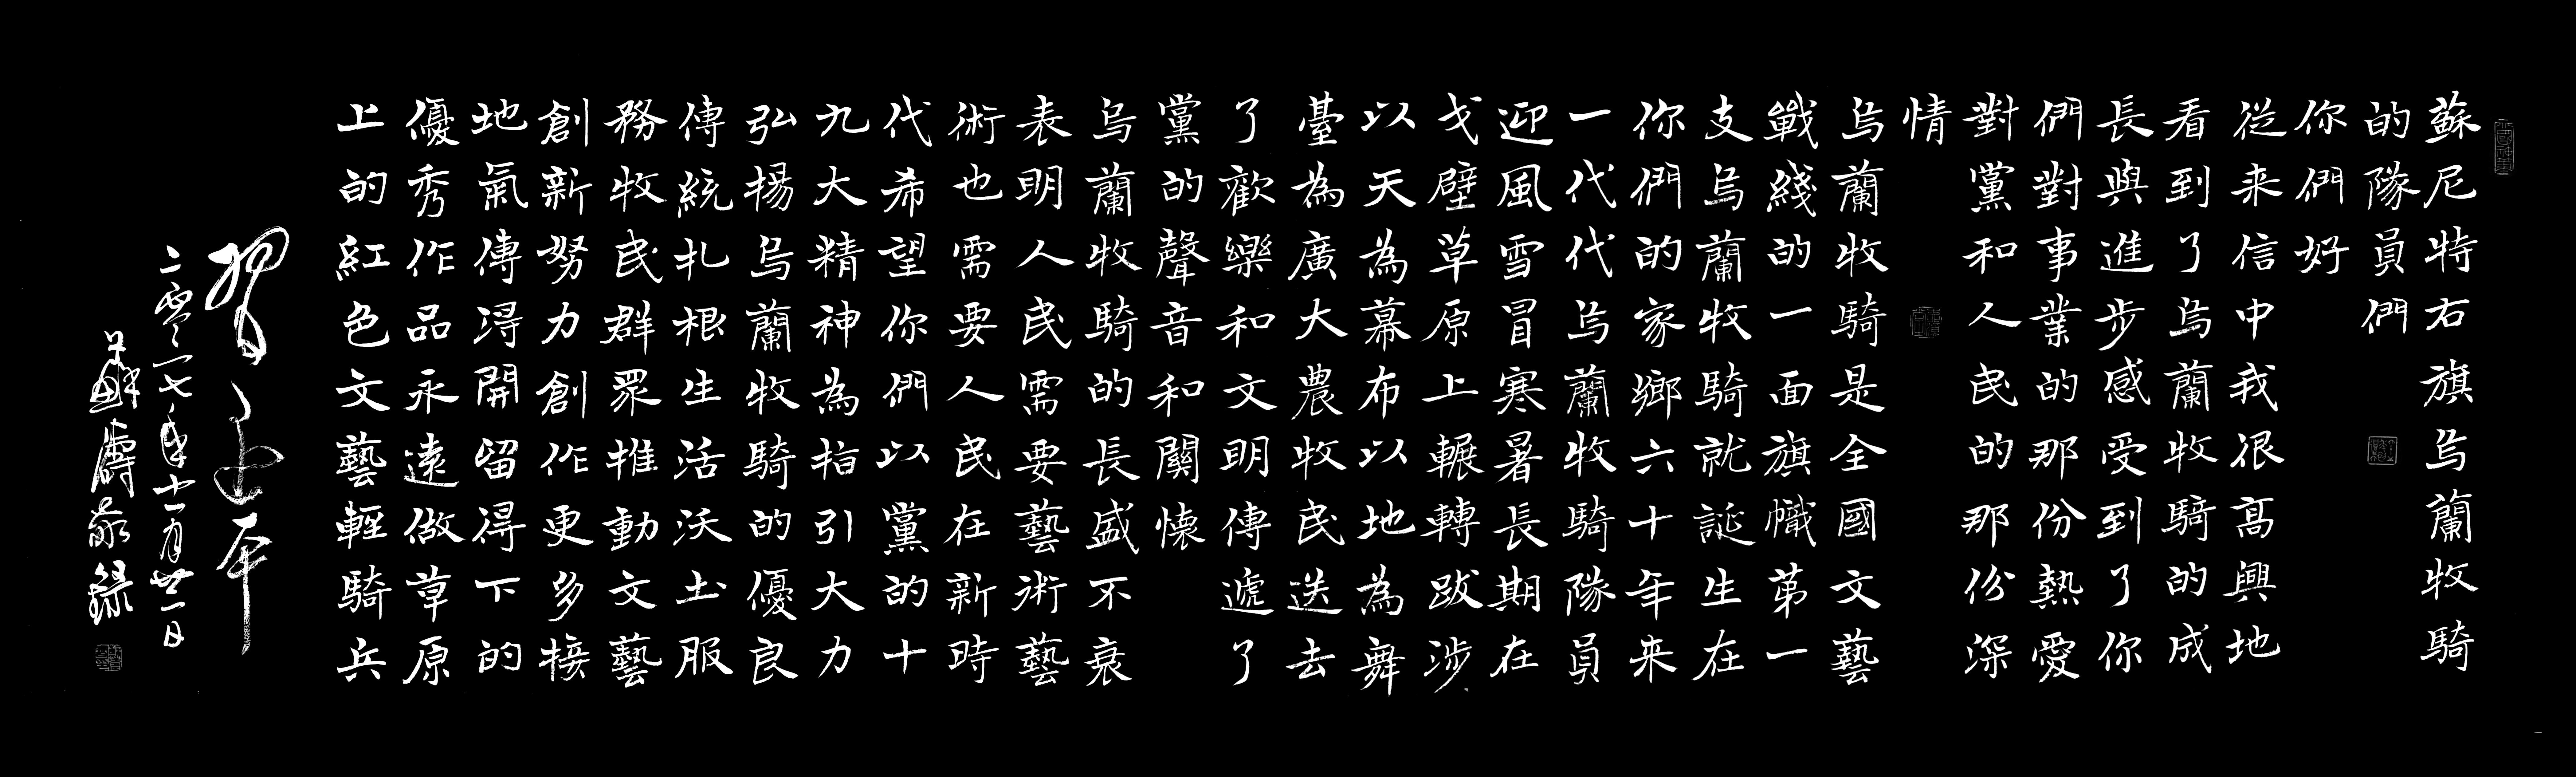 蘇尼特右旗烏蘭牧騎
的隊員們
你們好
從来信中我很髙興地
看到了烏蘭牧騎的成
長與進步感受到了你
們對事業的那份熱愛
對黨和人民的那份深
情
烏蘭牧騎是全國文藝
戰綫的一面旗幟第一
支烏蘭牧騎就誕生在
你們的家鄉六十年来
一代代烏蘭牧騎隊員
迎風雪冒寒暑長期在
戈壁草原上輾轉跋涉
以天為幕布以地為舞
臺為廣大農牧民送去
了歡樂和文明傳遞了
黨的聲音和關懷
烏蘭牧騎的長盛不衰
表明人民需要藝術藝
術也需要人民在新時
代希望你們以黨的十
九大精神為指引大力
弘揚烏蘭牧騎的優良
傳統扎根生活沃土服
務牧民群眾推動文藝
創新努力創作更多接
地氣傳得開留得下的
優秀作品永遠做草原
上的紅色文藝輕騎兵
習近平
二零一七年十一月廿一日
敬録